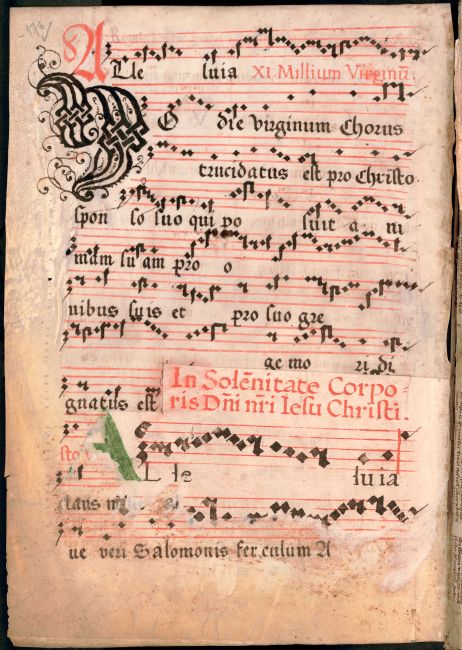 Alle luia XI Millium Virginũ
Ho die virginum Chorus
trucidatus est pro Christo
spon so suo qui po suit a ni
mam su am pro o
nibus suis et pro suo gre
ge mo ri di
In Solẽnitate Corpo
gnatus est
ris Dñi nr̃i Iesu Christi
sto
L le luia
ue veri Salomonis fer culum A